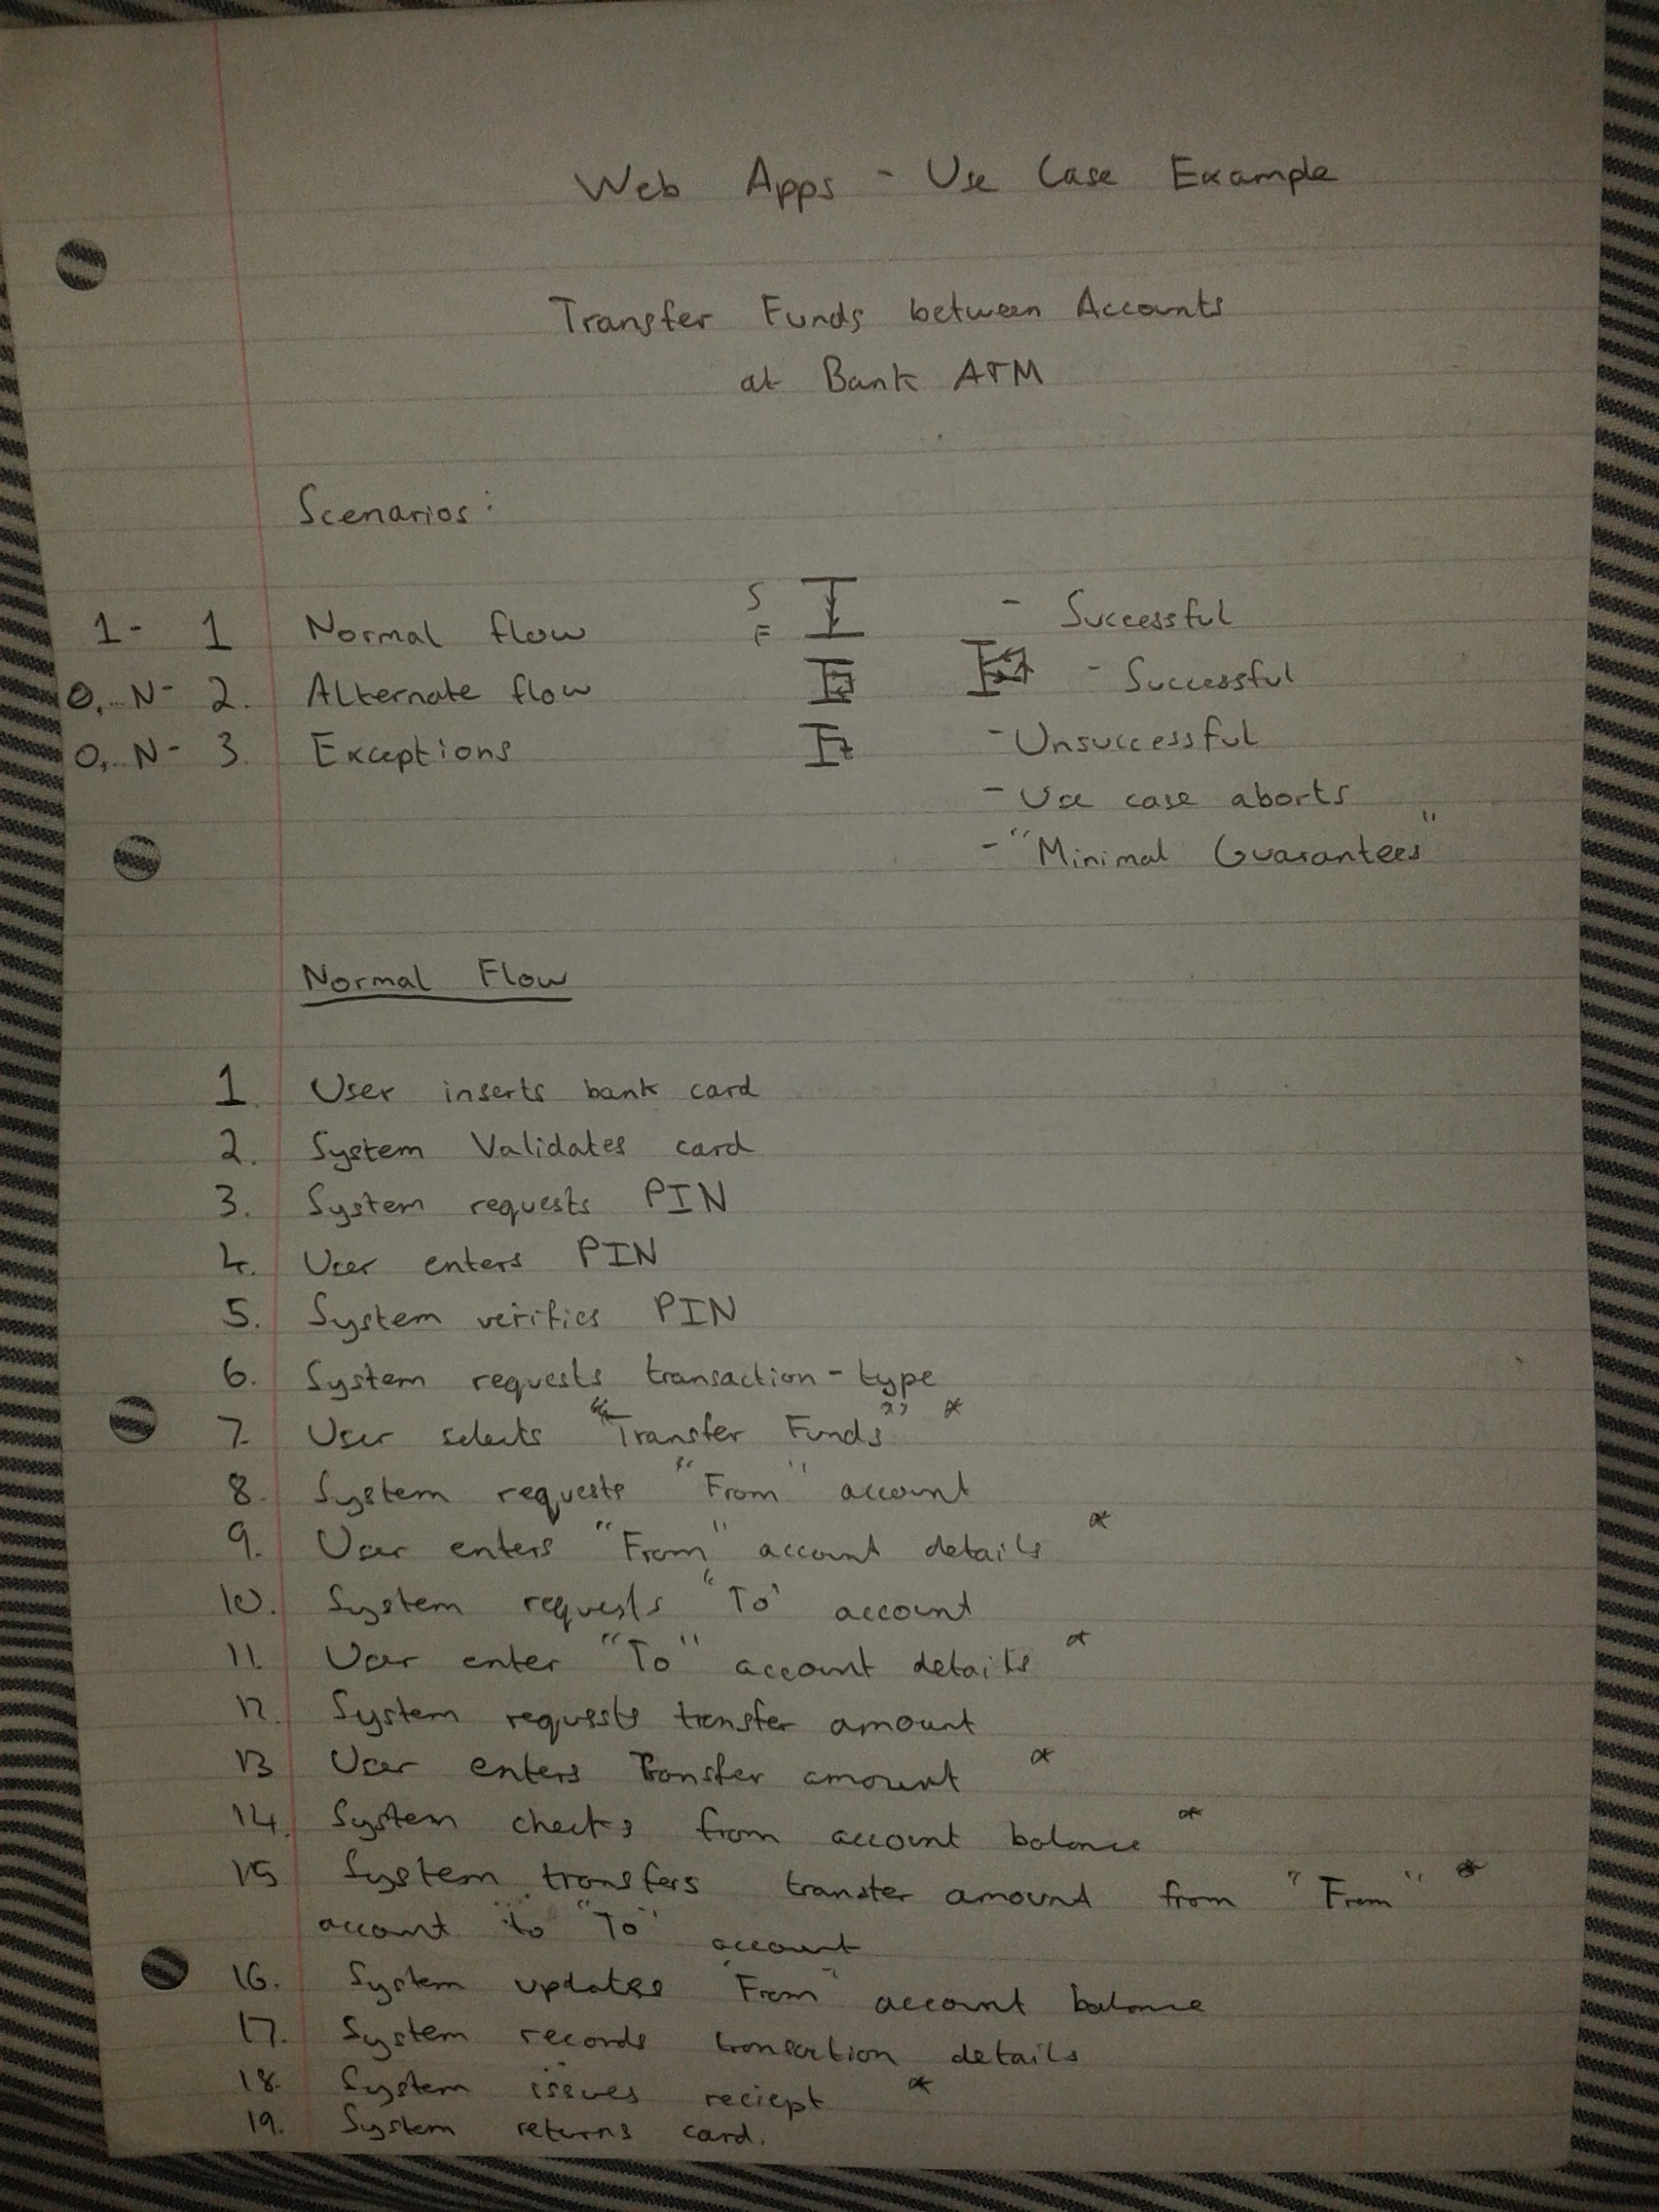 Web Apps - Use Case Example
Transfer Funds between Accounts
at Bank ATM
Scenarios:
1- 1 Normal flow S F - Successful
0,..N- 2. Alternate flow - Successful
0,..N- 3. Exceptions - Unsuccessful
- Use case aborts
- "Minimal Guarantees"
Normal Flow
1. User inserts bank card
2. System Validates card
3. System requests PIN
4. User enters PIN
5. System verifies PIN
6. System requests transaction-type
7. User selects "Transfer Funds" *
8. System requests "From" account
9. User enters "From" account details *
10. System requests "To" account
11. User enter "To" account details *
12. System requests transfer amount
13 User enters Transfer amount *
14. System checks from account balance *
15 System transfers transfer amount from "From" *
account to "To" account
16. System updates "From" account balance
17. System records transaction details
18. System issues reciept *
19. System returns card.